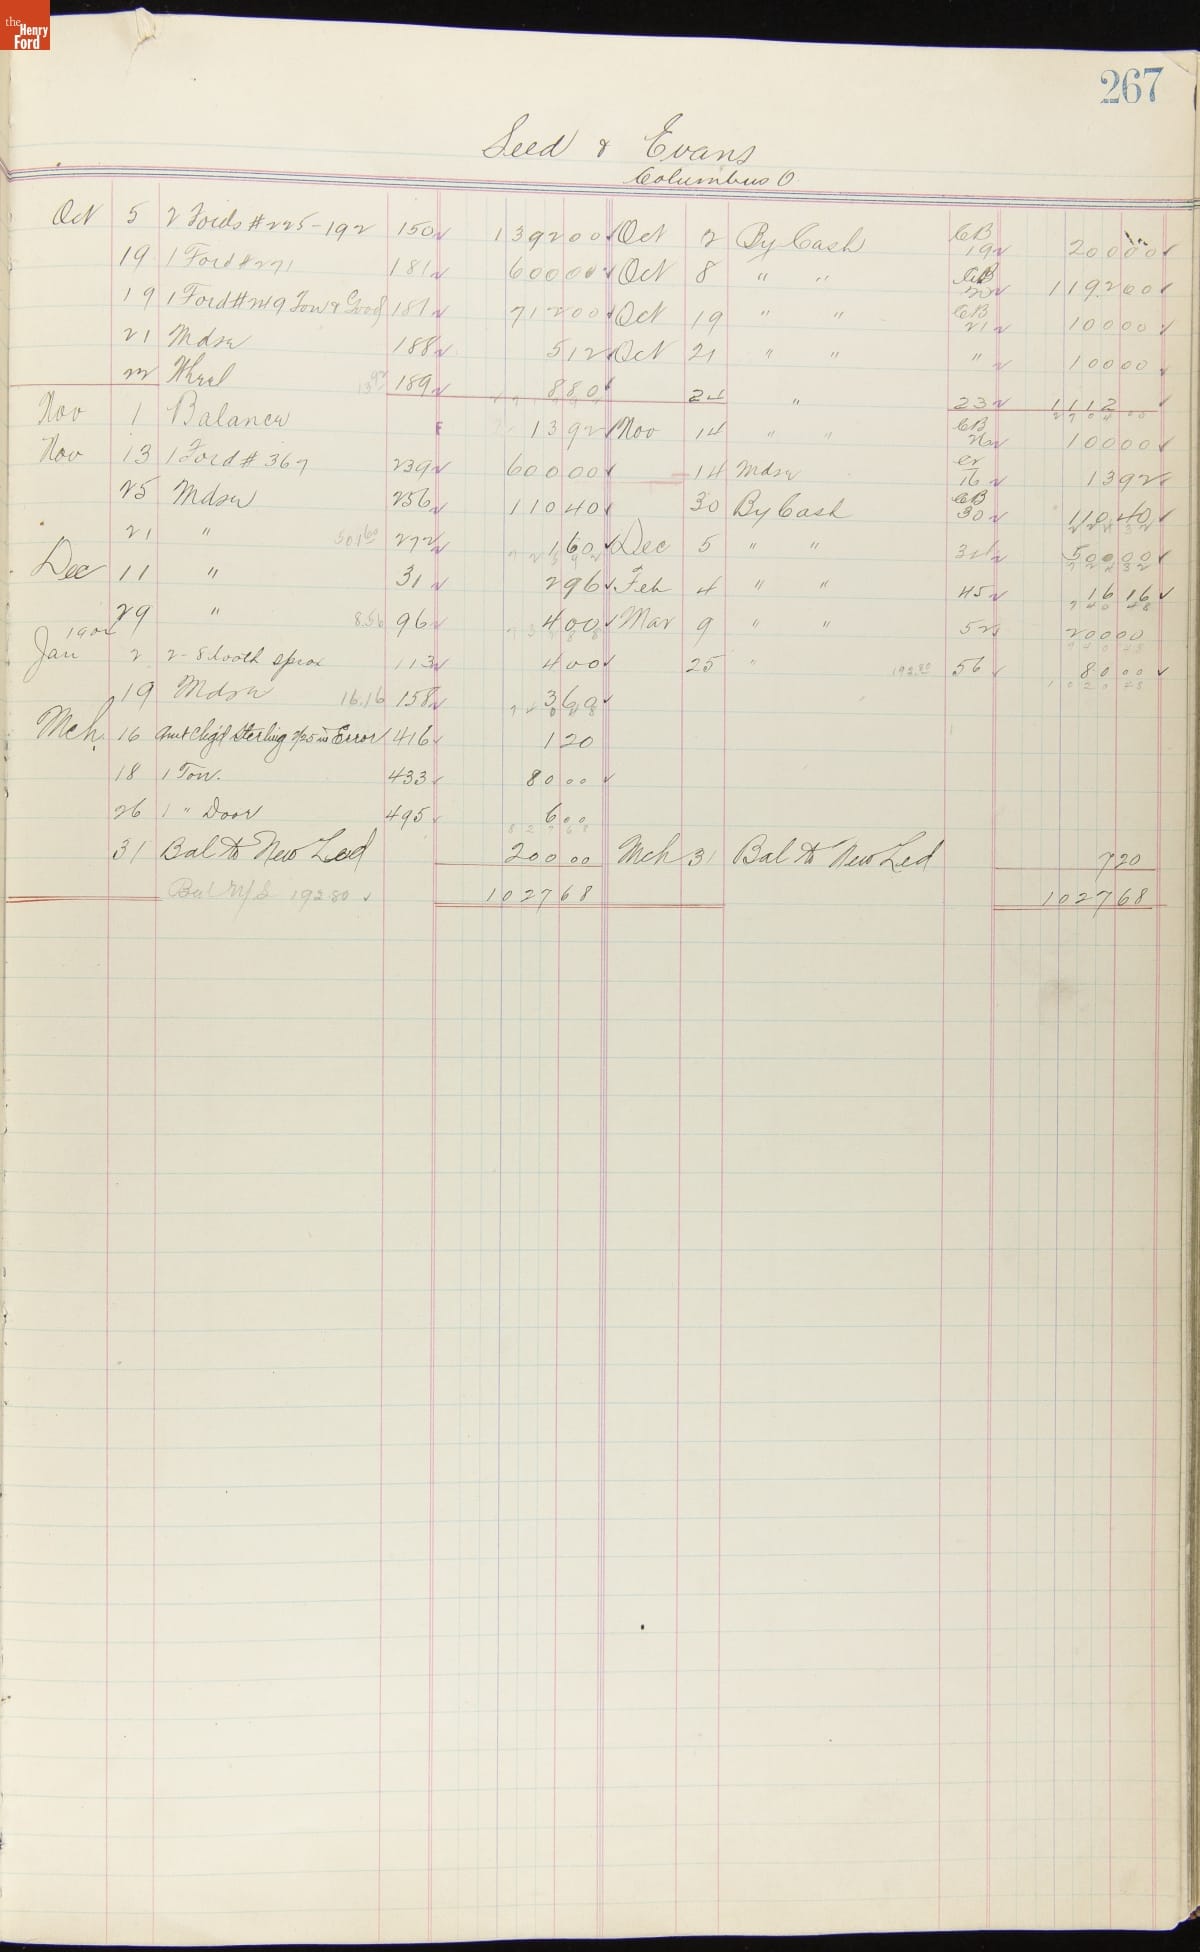 the Henry Ford
267
Seed & Evans
Columbus O.
Oct 5 2 Fords # 225-192 150 1392 00 Oct 2 By Cash CB 19 200 00
19 1 Ford # 271 181 600 00 Oct 8 " " CB 20 1192 00
19 1 Ford # 219 Ton & 181 712 00 Oct 19 " " CB 21 100 00
21 Mdse 188 5 12 Oct 21 " " " 100 00
22 Wheel 13 92 189 8 80 24 " 23 1112
Nov 1 Balance 13 92 Nov 14 " " CB 100 00
Nov 13 1 Ford # 367 239 600 00 14 Mdse cr 16 13 92
25 Mdse 256 110 40 30 By Cash CB 30 110 40
21 " 501 60 272 1 60 Dec 5 " " 31 500 00
Dec 11 " 31 2 96 Feb 4 " " 45 16 16
29 " 8.56 96 4 00 Mar 9 " " 52 200 00
Jan 2 2-8 tooth sprox 113 4 00 25 " 192.80 56 80 00
19 Mdse 16.16 158 3 60
Mch. 16 Amt Chg'd Sterling 2/25 in Error 416 1 20
18 1 Ton. 433 80 00
26 1 " Door 495 6 00
8 2 7 6 8
31 Bal to New Led 200 00 Mch 31 Bal to New Led 7 20
Bal N/L 192 80 1027 68 1027 68